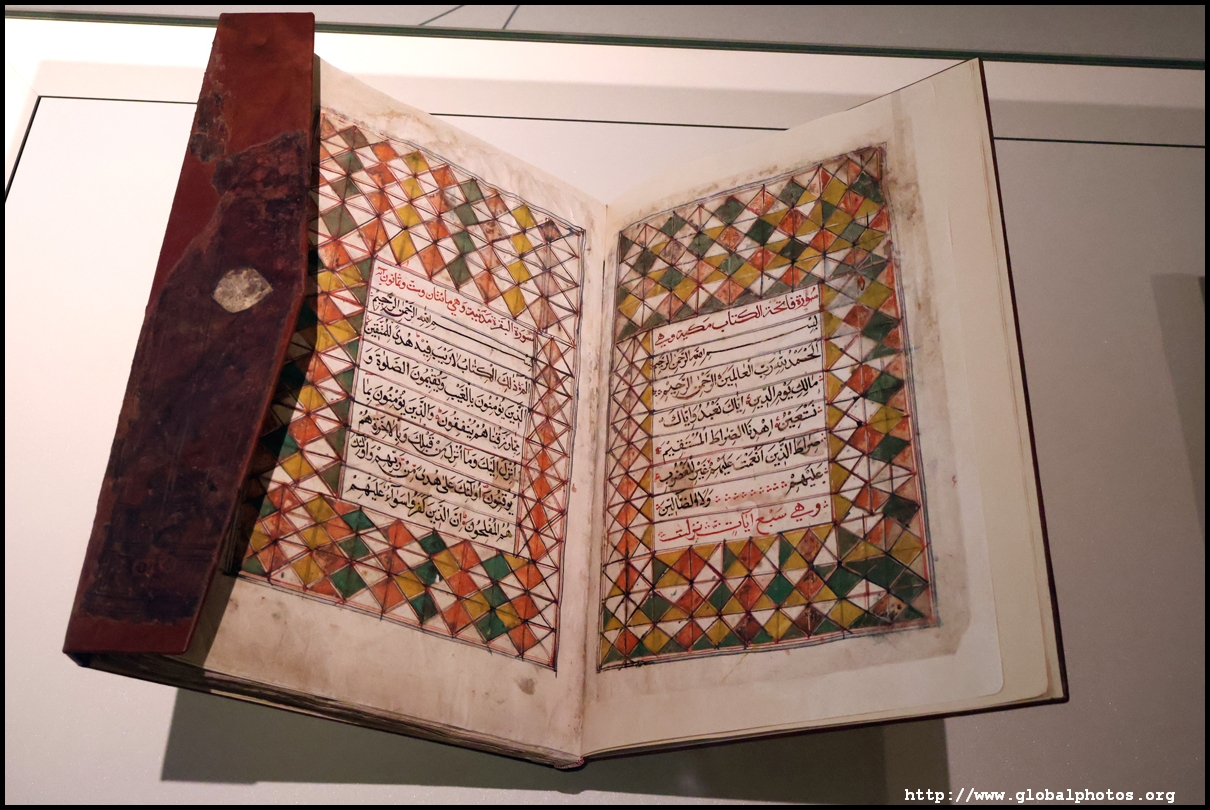 سورة فاتحة الكتاب مكية وهي
بسم الله الرحمن الرحيم
الحمد لله رب العالمين الرحمن الرحيم
مالك يوم الدين اياك نعبد واياك
نستعين اهدنا الصراط المستقيم
صراط الذين انعمت عليهم غير المغضوب
عليهم ولا الضالين
وهي سبع ايات نزلت
سورة البقرة مدنية وهي مائتان وست وثمانون اية
بسم الله الرحمن الرحيم
الم ذلك الكتاب لاريب فيه هدى للمتقين
الذين يؤمنون بالغيب ويقيمون الصلوة و
مما رزقناهم ينفقون والذين يؤمنون بما
انزل اليك وما انزل من قبلك وبالاخرة هم
يوقنون اولئك على هدى من ربهم واولئك
هم المفلحون ان الذين كفروا سواء عليهم
http://www.globalphotos.org